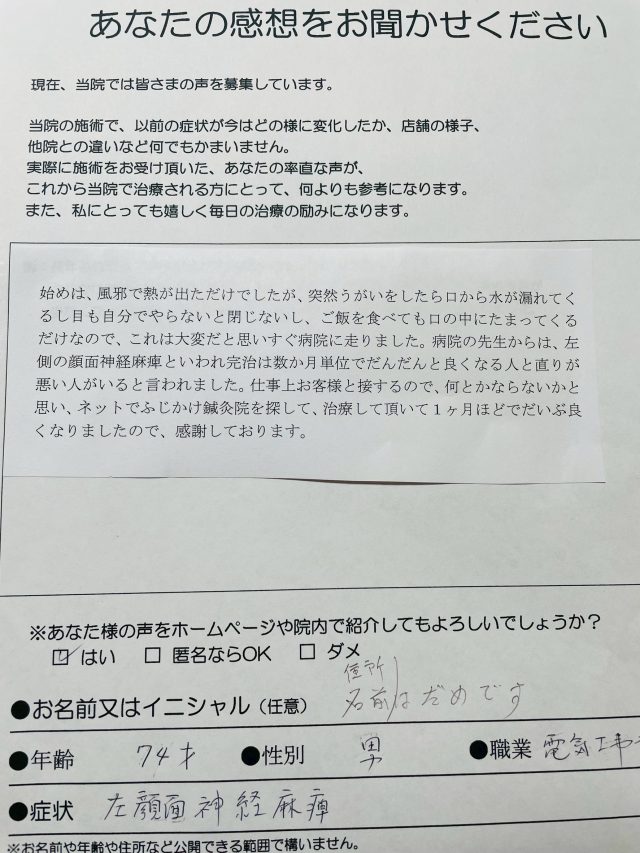 あなたの感想をお聞かせください
現在、当院では皆さまの声を募集しています。
当院の施術で、以前の症状が今はどの様に変化したか、店舗の様子、
他院との違いなど何でもかまいません。
実際に施術をお受け頂いた、あなたの率直な声が、
これから当院で治療される方にとって、何よりも参考になります。
また、私にとっても嬉しく毎日の治療の励みになります。
始めは、風邪で熱が出ただけでしたが、突然うがいをしたら口から水が漏れてく
るし目も自分でやらないと閉じないし、ご飯を食べても口の中にたまってくる
だけなので、これは大変だと思いすぐ病院に走りました。病院の先生からは、左
側の顔面神経麻痺といわれ完治は数か月単位でだんだんと良くなる人と直りが
悪い人がいると言われました。仕事上お客様と接するので、何とかならないかと
思い、ネットでふじかけ鍼灸院を探して、治療して頂いて１ヶ月ほどでだいぶ良
くなりましたので、感謝しております。
※あなた様の声をホームページや院内で紹介してもよろしいでしょうか？
☑ はい □ 匿名ならOK □ ダメ
住所
●お名前又はイニシャル（任意） 名前はだめです
●年齢 74才 ●性別 男 ●職業 電気工事
●症状 左顔面神経麻痺
※お名前や年齢や住所など公開できる範囲で構いません。